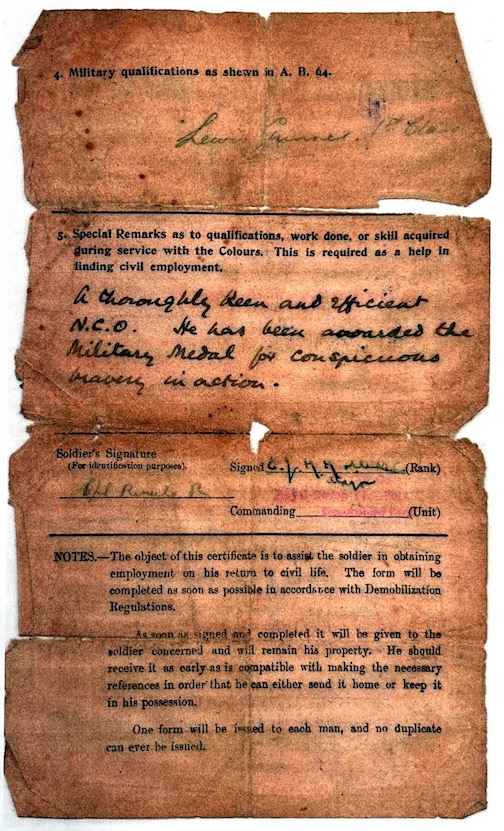 4. Military qualifications as shewn in A. B. 64.
Lewis Gunner. 1st Class
5. Special Remarks as to qualifications, work done, or skill acquired
during service with the Colours. This is required as a help in
finding civil employment.
A thoroughly keen and efficient
N.C.O. He has been awarded the
Military Medal for conspicuous
bravery in action.
Soldier's Signature
(For identification purposes).
Signed (Rank)
Cpl
Commanding (Unit)
NOTES.—The object of this certificate is to assist the soldier in obtaining
employment on his return to civil life. The form will be
completed as soon as possible in accordance with Demobilization
Regulations.
As soon as signed and completed it will be given to the
soldier concerned and will remain his property. He should
receive it as early as is compatible with making the necessary
references in order that he can either send it home or keep it
in his possession.
One form will be issued to each man, and no duplicate
can ever be issued.